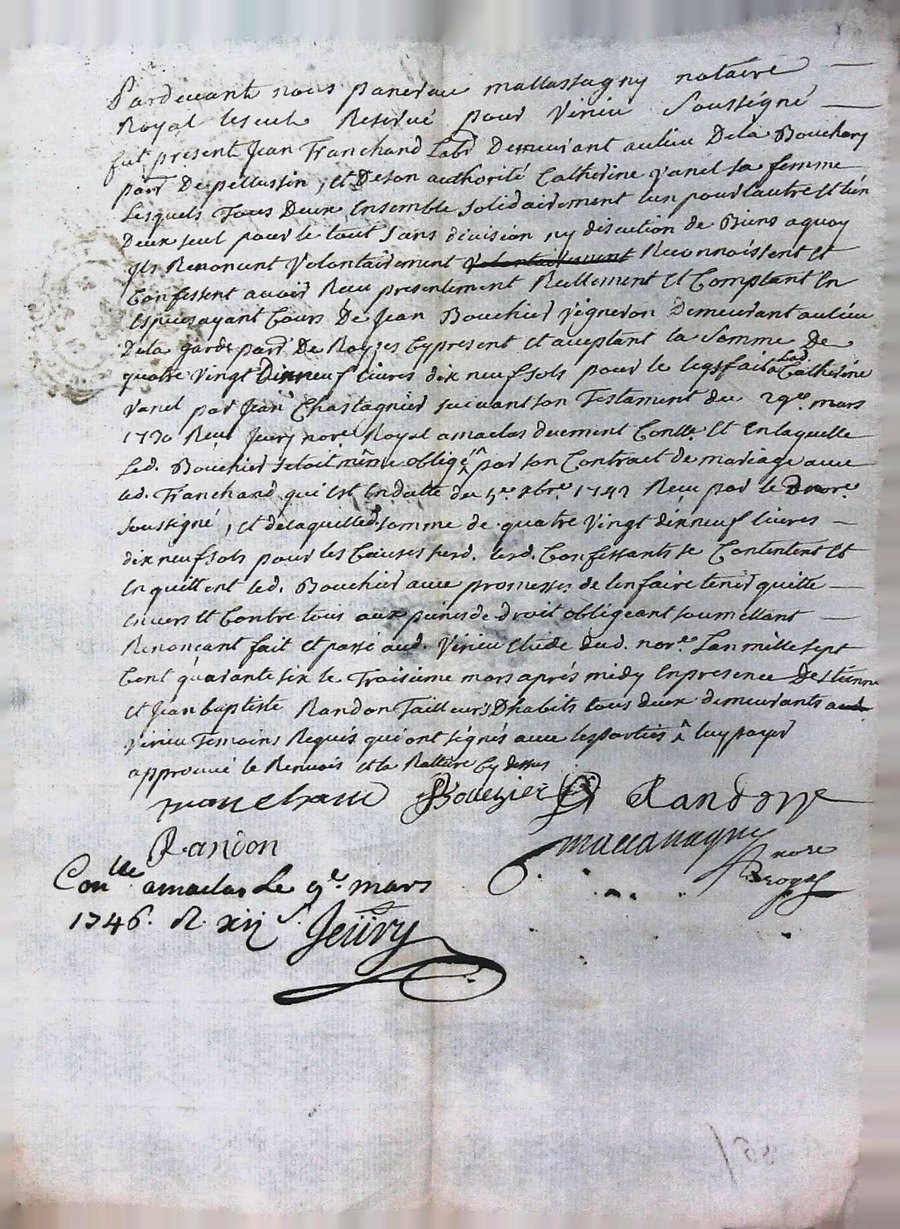 Pardevant nous pancrace mallassagny notaire
Royal lescul Reservé pour Virieu Soussigné
fut present Jean Franchand Labr Demeurant au lieu De la Bouchary
parr De pellussin, et De son authorité Catherine vanel sa femme
Lesquels Tous Deux Ensemble solidairement lun pour lautre et lun
Deux seul pour le tout sans division ny discution de Biens aquoy
ils Renoncent Volontairement volontairement Reconnoissent et
Confessent avoir Receu presentement Reellement et Comptant en
Especes ayant Cours De Jean Bouchier vigneron Demeurant au lieu
De la garde parr De Roizes Cy present et aceptant la somme De
quatre vingt Dixneuf livres dix neuf sols pour le legs fait a Lad. Catherine
vanel par Jean Chastagnier suivant son Testament du 29e mars
1730 Receu Jeury nore Royal a maclas duement Contllé Et En laquelle
Led. Bouchier setoit même obligé par son Contract de mariage avec
led. Franchand qui est En datte du 5e xbre 1742 Receu par le nore
soussigné, et de laquelle somme de quatre Vingt dixneuf livres
dix neuf sols pour les Causes susd. lesd. Confessants se Contentent Et
En quittent led. Bouchier avec promesses de len faire tenir quitte
envers et Contre tous aux peines de droit obligeant soumettant
Renonçant fait et passé aud. Virieu Etude dud. nore Lan mille sept
Cent quarante six le Troisieme mars aprés midy En presence D'estienne
et Jean baptiste Randon Tailleurs D'habits tous deux demeurants aud
virieu Temoins Requis qui ont signés avec les parties ^ luy payer
approuvé le Renvois et la Rature Cy dessus
franchand Bouchier Randon
Randon mallassagny nore Royal
Contllé a maclas Le 9e mars
1746. R. xij s. Jeüry